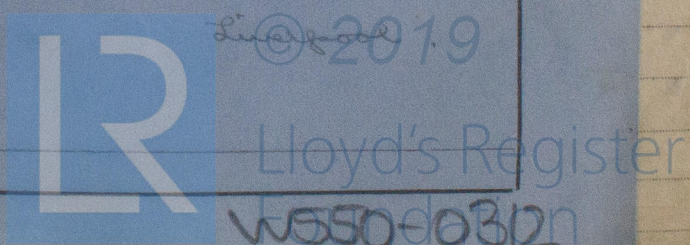 Liverpool.
© 2019
LR
Lloyd's Register
Foundation
W550-0312